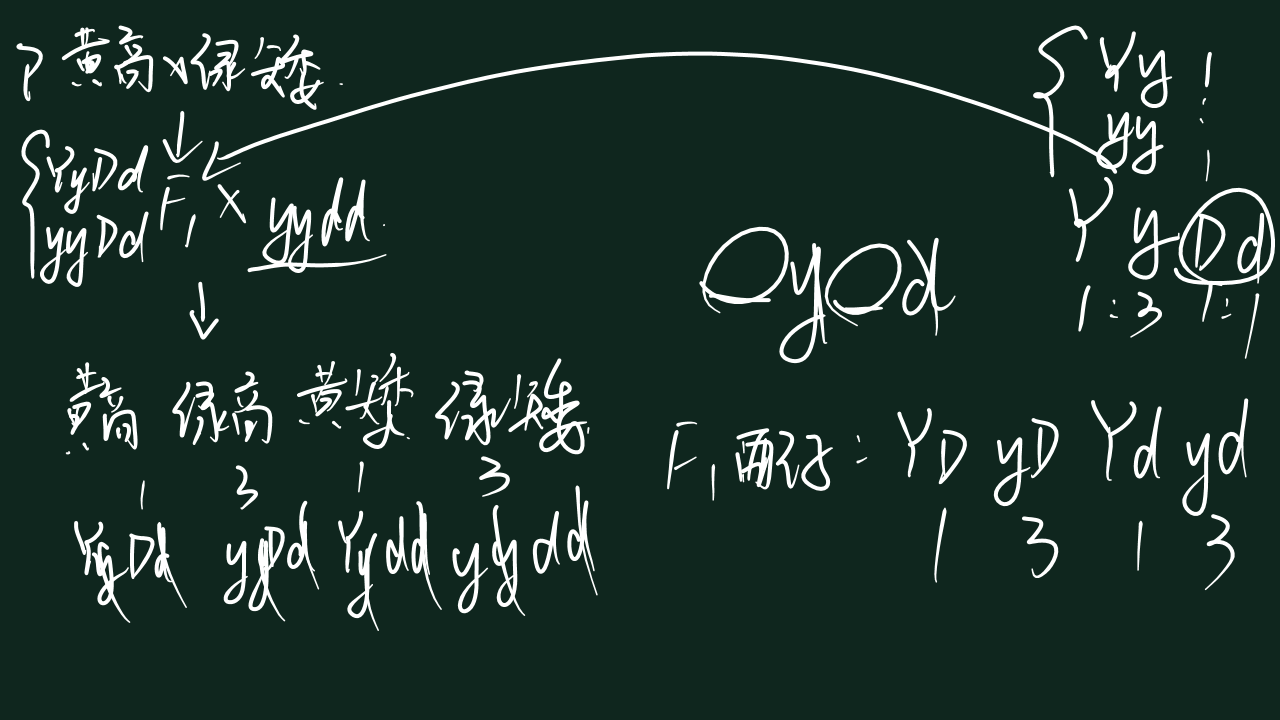 P 黄高×绿矮
YyDd
yyDd
F1 × yydd
黄高 绿高 黄矮 绿矮
1 3 1 3
YyDd yyDd Yydd yydd
Yy 1
:
yy 1
Y y Dd
1:3 1:1
yd
F1配子: YD yD Yd yd
1 3 1 3